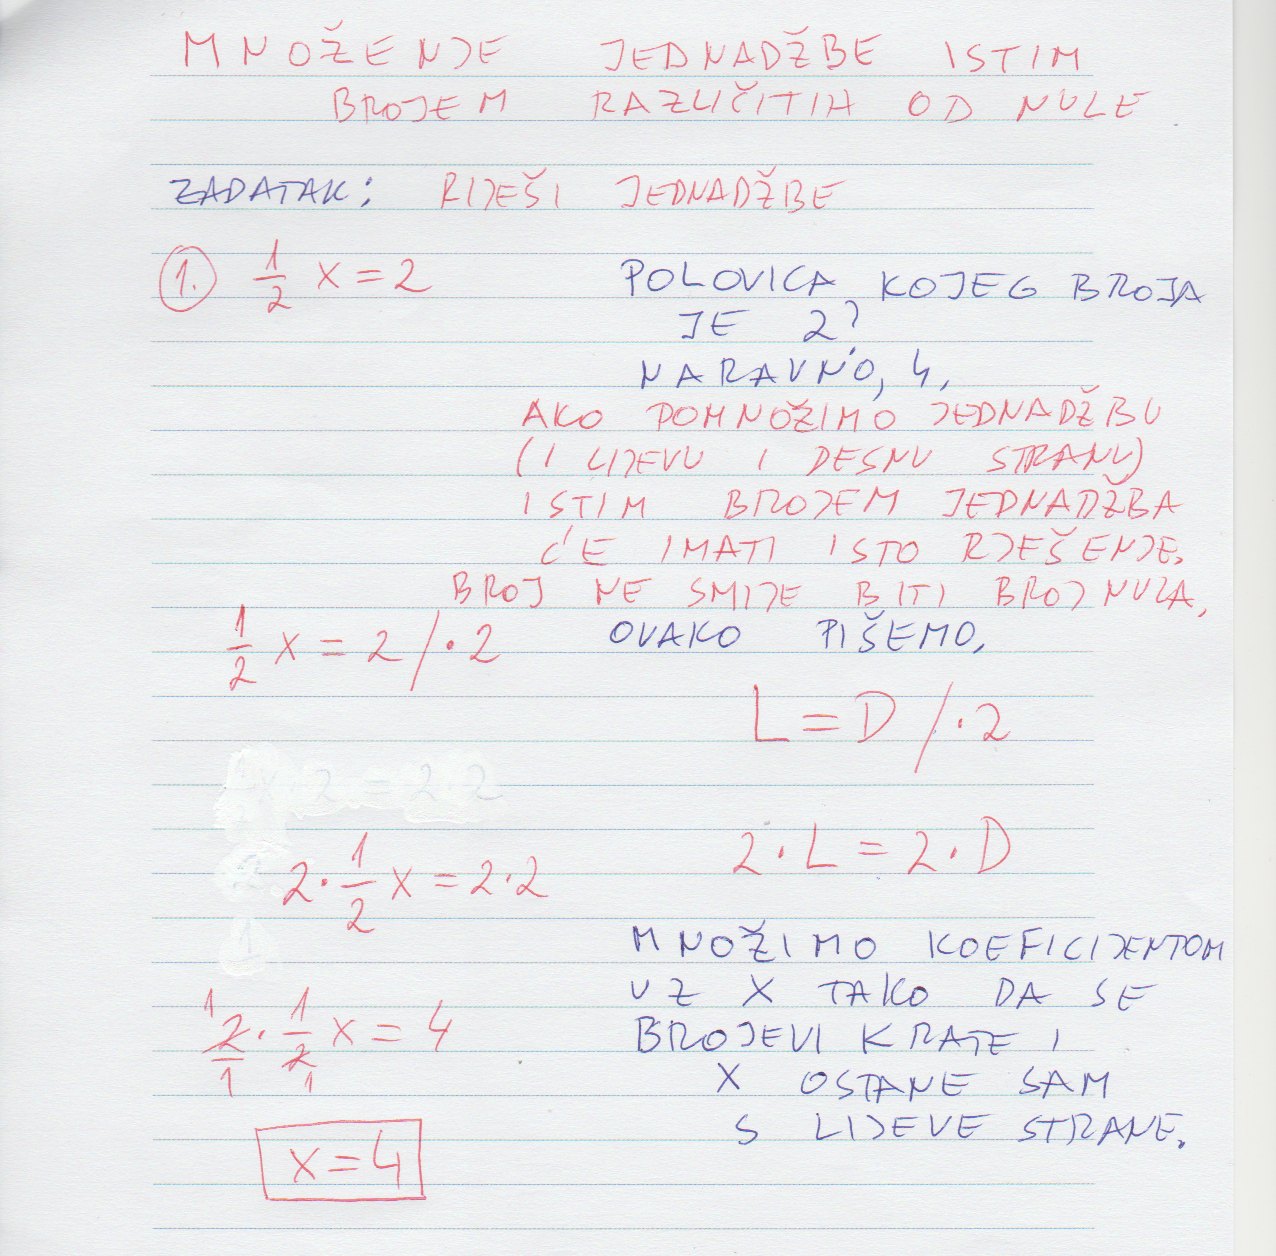 MNOŽENJE JEDNADŽBE ISTIM
BROJEM RAZLIČITIH OD NULE
ZADATAK: RIJEŠI JEDNADŽBE
1. 1/2 x = 2
POLOVICA KOJEG BROJA
JE 2?
NARAVNO, 4.
AKO POMNOŽIMO JEDNADŽBU
(I LIJEVU I DESNU STRANU)
ISTIM BROJEM JEDNADŽBA
ĆE IMATI ISTO RJEŠENJE.
BROJ NE SMIJE BITI BROJ NULA.
1/2 x = 2 / · 2
OVAKO PIŠEMO.
L = D / · 2
2 · 1/2 x = 2 · 2
2 · L = 2 · D
MNOŽIMO KOEFICIJENTOM
UZ X TAKO DA SE
BROJEVI KRATE I
X OSTANE SAM
S LIJEVE STRANE.
1 2/1 · 1/2 1 x = 4
x = 4